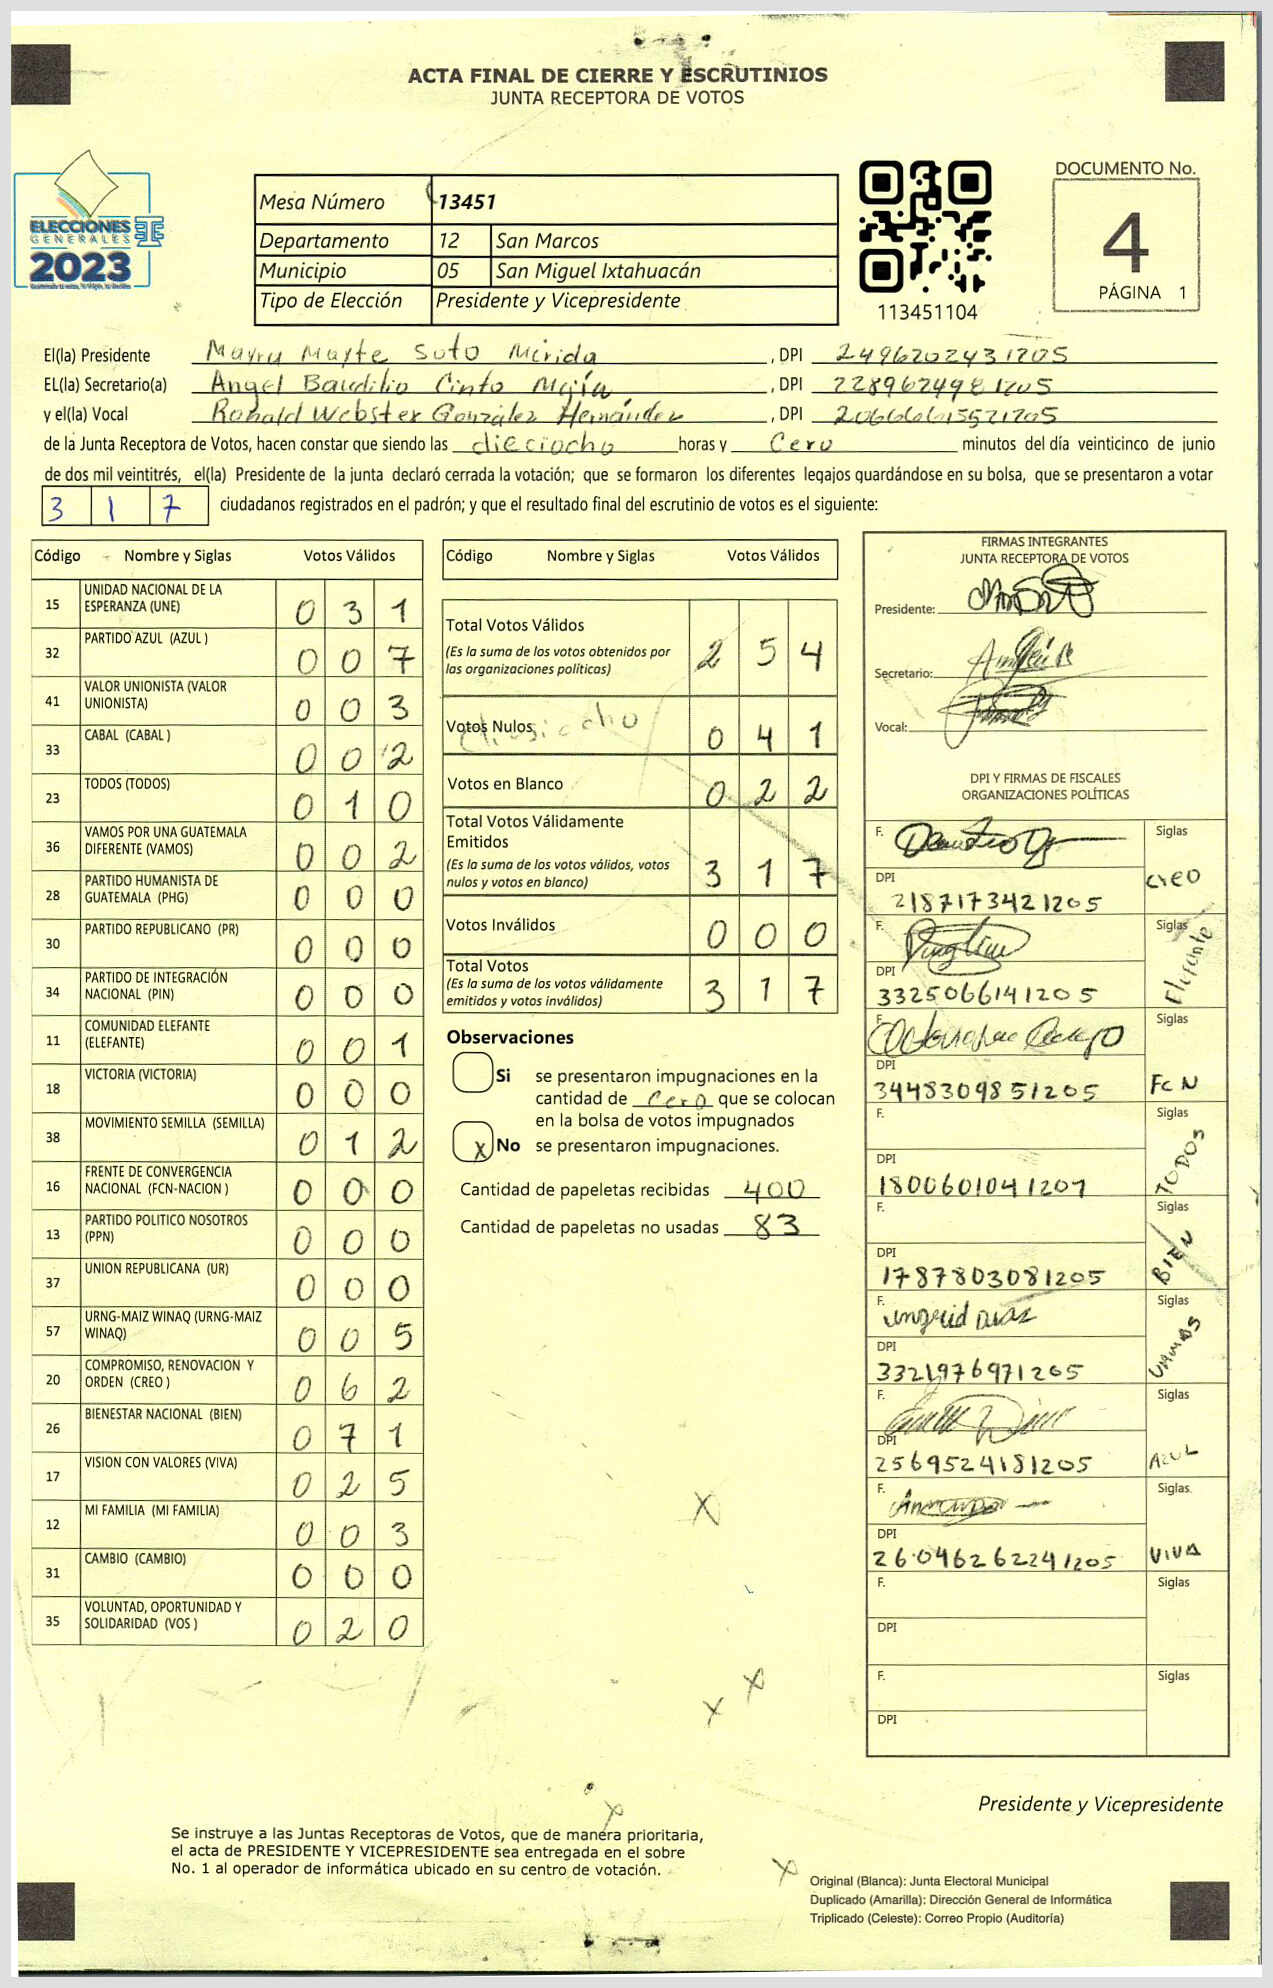 ACTA FINAL DE CIERRE Y ESCRUTINIOS
JUNTA RECEPTORA DE VOTOS
ELECCIONES
GENERALES
2023
Mesa Número 13451
Departamento 12 San Marcos
Municipio 05 San Miguel Ixtahuacán
Tipo de Elección Presidente y Vicepresidente
113451104
DOCUMENTO No.
4
PÁGINA 1
El(la) Presidente Mayra Mayte Soto Mérida, DPI 2496202431205
EL(la) Secretario(a) Angel Baudilio Cinto Mejía, DPI 2289624981205
y el(la) Vocal Ronald Webster González Hernández, DPI 2066661551205
de la Junta Receptora de Votos, hacen constar que siendo las dieciocho horas y Cero minutos del día veinticinco de junio
de dos mil veintitrés, el(la) Presidente de la junta declaró cerrada la votación; que se formaron los diferentes legajos guardándose en su bolsa, que se presentaron a votar
3 1 7 ciudadanos registrados en el padrón; y que el resultado final del escrutinio de votos es el siguiente:
Código Nombre y Siglas Votos Válidos
15 UNIDAD NACIONAL DE LA ESPERANZA (UNE) 0 3 1
32 PARTIDO AZUL (AZUL ) 0 0 7
41 VALOR UNIONISTA (VALOR UNIONISTA) 0 0 3
33 CABAL (CABAL ) 0 0 2
23 TODOS (TODOS) 0 1 0
36 VAMOS POR UNA GUATEMALA DIFERENTE (VAMOS) 0 0 2
28 PARTIDO HUMANISTA DE GUATEMALA (PHG) 0 0 0
30 PARTIDO REPUBLICANO (PR) 0 0 0
34 PARTIDO DE INTEGRACIÓN NACIONAL (PIN) 0 0 0
11 COMUNIDAD ELEFANTE (ELEFANTE) 0 0 1
18 VICTORIA (VICTORIA) 0 0 0
38 MOVIMIENTO SEMILLA (SEMILLA) 0 1 2
16 FRENTE DE CONVERGENCIA NACIONAL (FCN-NACION ) 0 0 0
13 PARTIDO POLITICO NOSOTROS (PPN) 0 0 0
37 UNION REPUBLICANA (UR) 0 0 0
57 URNG-MAIZ WINAQ (URNG-MAIZ WINAQ) 0 0 5
20 COMPROMISO, RENOVACION Y ORDEN (CREO ) 0 6 2
26 BIENESTAR NACIONAL (BIEN) 0 7 1
17 VISION CON VALORES (VIVA) 0 2 5
12 MI FAMILIA (MI FAMILIA) 0 0 3
31 CAMBIO (CAMBIO) 0 0 0
35 VOLUNTAD, OPORTUNIDAD Y SOLIDARIDAD (VOS ) 0 2 0
Código Nombre y Siglas Votos Válidos
Total Votos Válidos
(Es la suma de los votos obtenidos por
las organizaciones políticas) 2 5 4
Votos Nulos 0 4 1
Votos en Blanco 0 2 2
Total Votos Válidamente
Emitidos
(Es la suma de los votos válidos, votos
nulos y votos en blanco) 3 1 7
Votos Inválidos 0 0 0
Total Votos
(Es la suma de los votos válidamente
emitidos y votos inválidos) 3 1 7
Observaciones
Si se presentaron impugnaciones en la
cantidad de Cero que se colocan
en la bolsa de votos impugnados
x No se presentaron impugnaciones.
Cantidad de papeletas recibidas 400
Cantidad de papeletas no usadas 83
FIRMAS INTEGRANTES
JUNTA RECEPTORA DE VOTOS
Presidente:
Secretario:
Vocal:
DPI Y FIRMAS DE FISCALES
ORGANIZACIONES POLÍTICAS
F. Siglas
DPI CREO
2187173421205
F. Siglas
DPI Elefante
3325066141205
F. Siglas
DPI FCN
3448309851205
F. Siglas
DPI TODOS
1800601041207
F. Siglas
DPI BIEN
1787803081205
F. Ingrid Diaz Siglas
DPI VAMOS
3321976971205
F. Siglas
DPI AZUL
2569524181205
F. Siglas
DPI VIVA
26046262241205
F. Siglas
DPI
F. Siglas
DPI
Presidente y Vicepresidente
Se instruye a las Juntas Receptoras de Votos, que de manera prioritaria,
el acta de PRESIDENTE Y VICEPRESIDENTE sea entregada en el sobre
No. 1 al operador de informática ubicado en su centro de votación.
Original (Blanca): Junta Electoral Municipal
Duplicado (Amarilla): Dirección General de Informática
Triplicado (Celeste): Correo Propio (Auditoría)